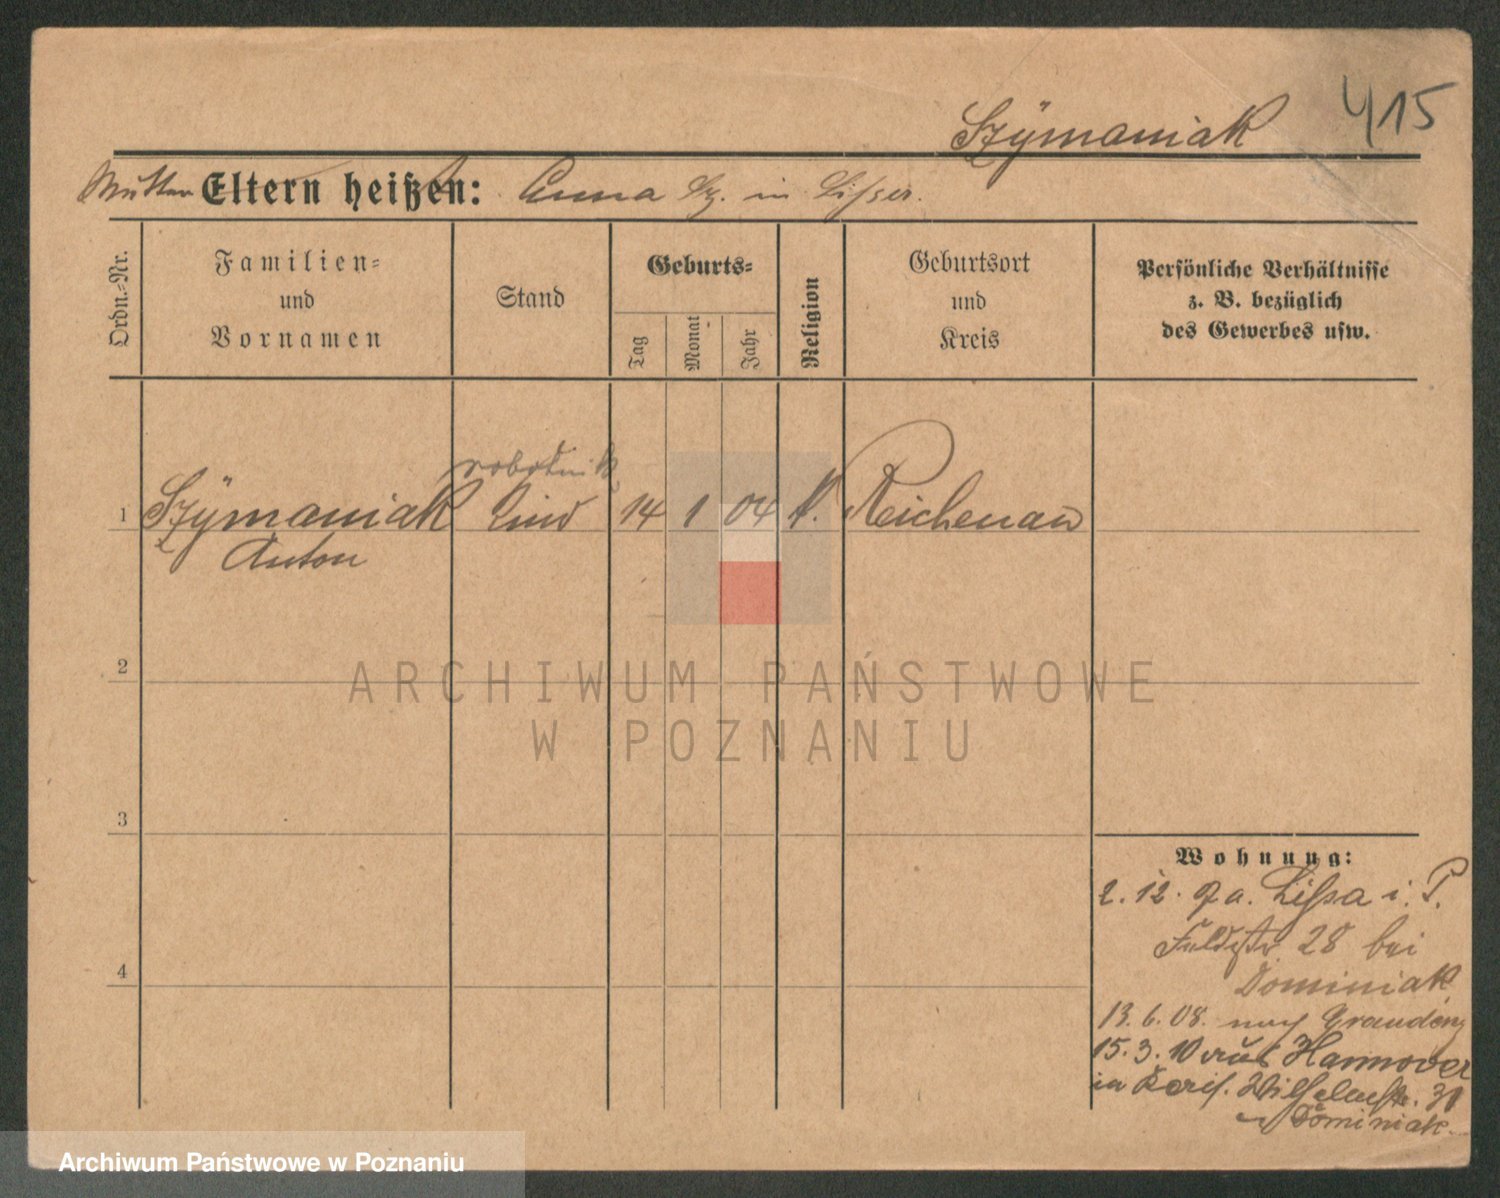 Szÿmaniak 415
Mutter Eltern heißen: Anna Sz. in Lissen.
Ordn.-Nr.
Familien-
und
Vornamen
Stand
Geburts-
Tag
Monat
Jahr
Religion
Geburtsort
und
Kreis
Persönliche Verhältnisse
z. B. bezüglich
des Gewerbes usw.
robotnik
1 Szÿmaniak Kind 14 1 04 k. Reichenau
Anton
2
3
4
ARCHIWUM PAŃSTWOWE
W POZNANIU
Wohnung:
2. 12. 07 a. Lissa i. P.
Feldstr 28 bei
Dominiak
13. 6. 08. nach Graudenz
15. 3. 10 aus Hannover
in Wilhelmstr. 31
Dominiak
Archiwum Państwowe w Poznaniu